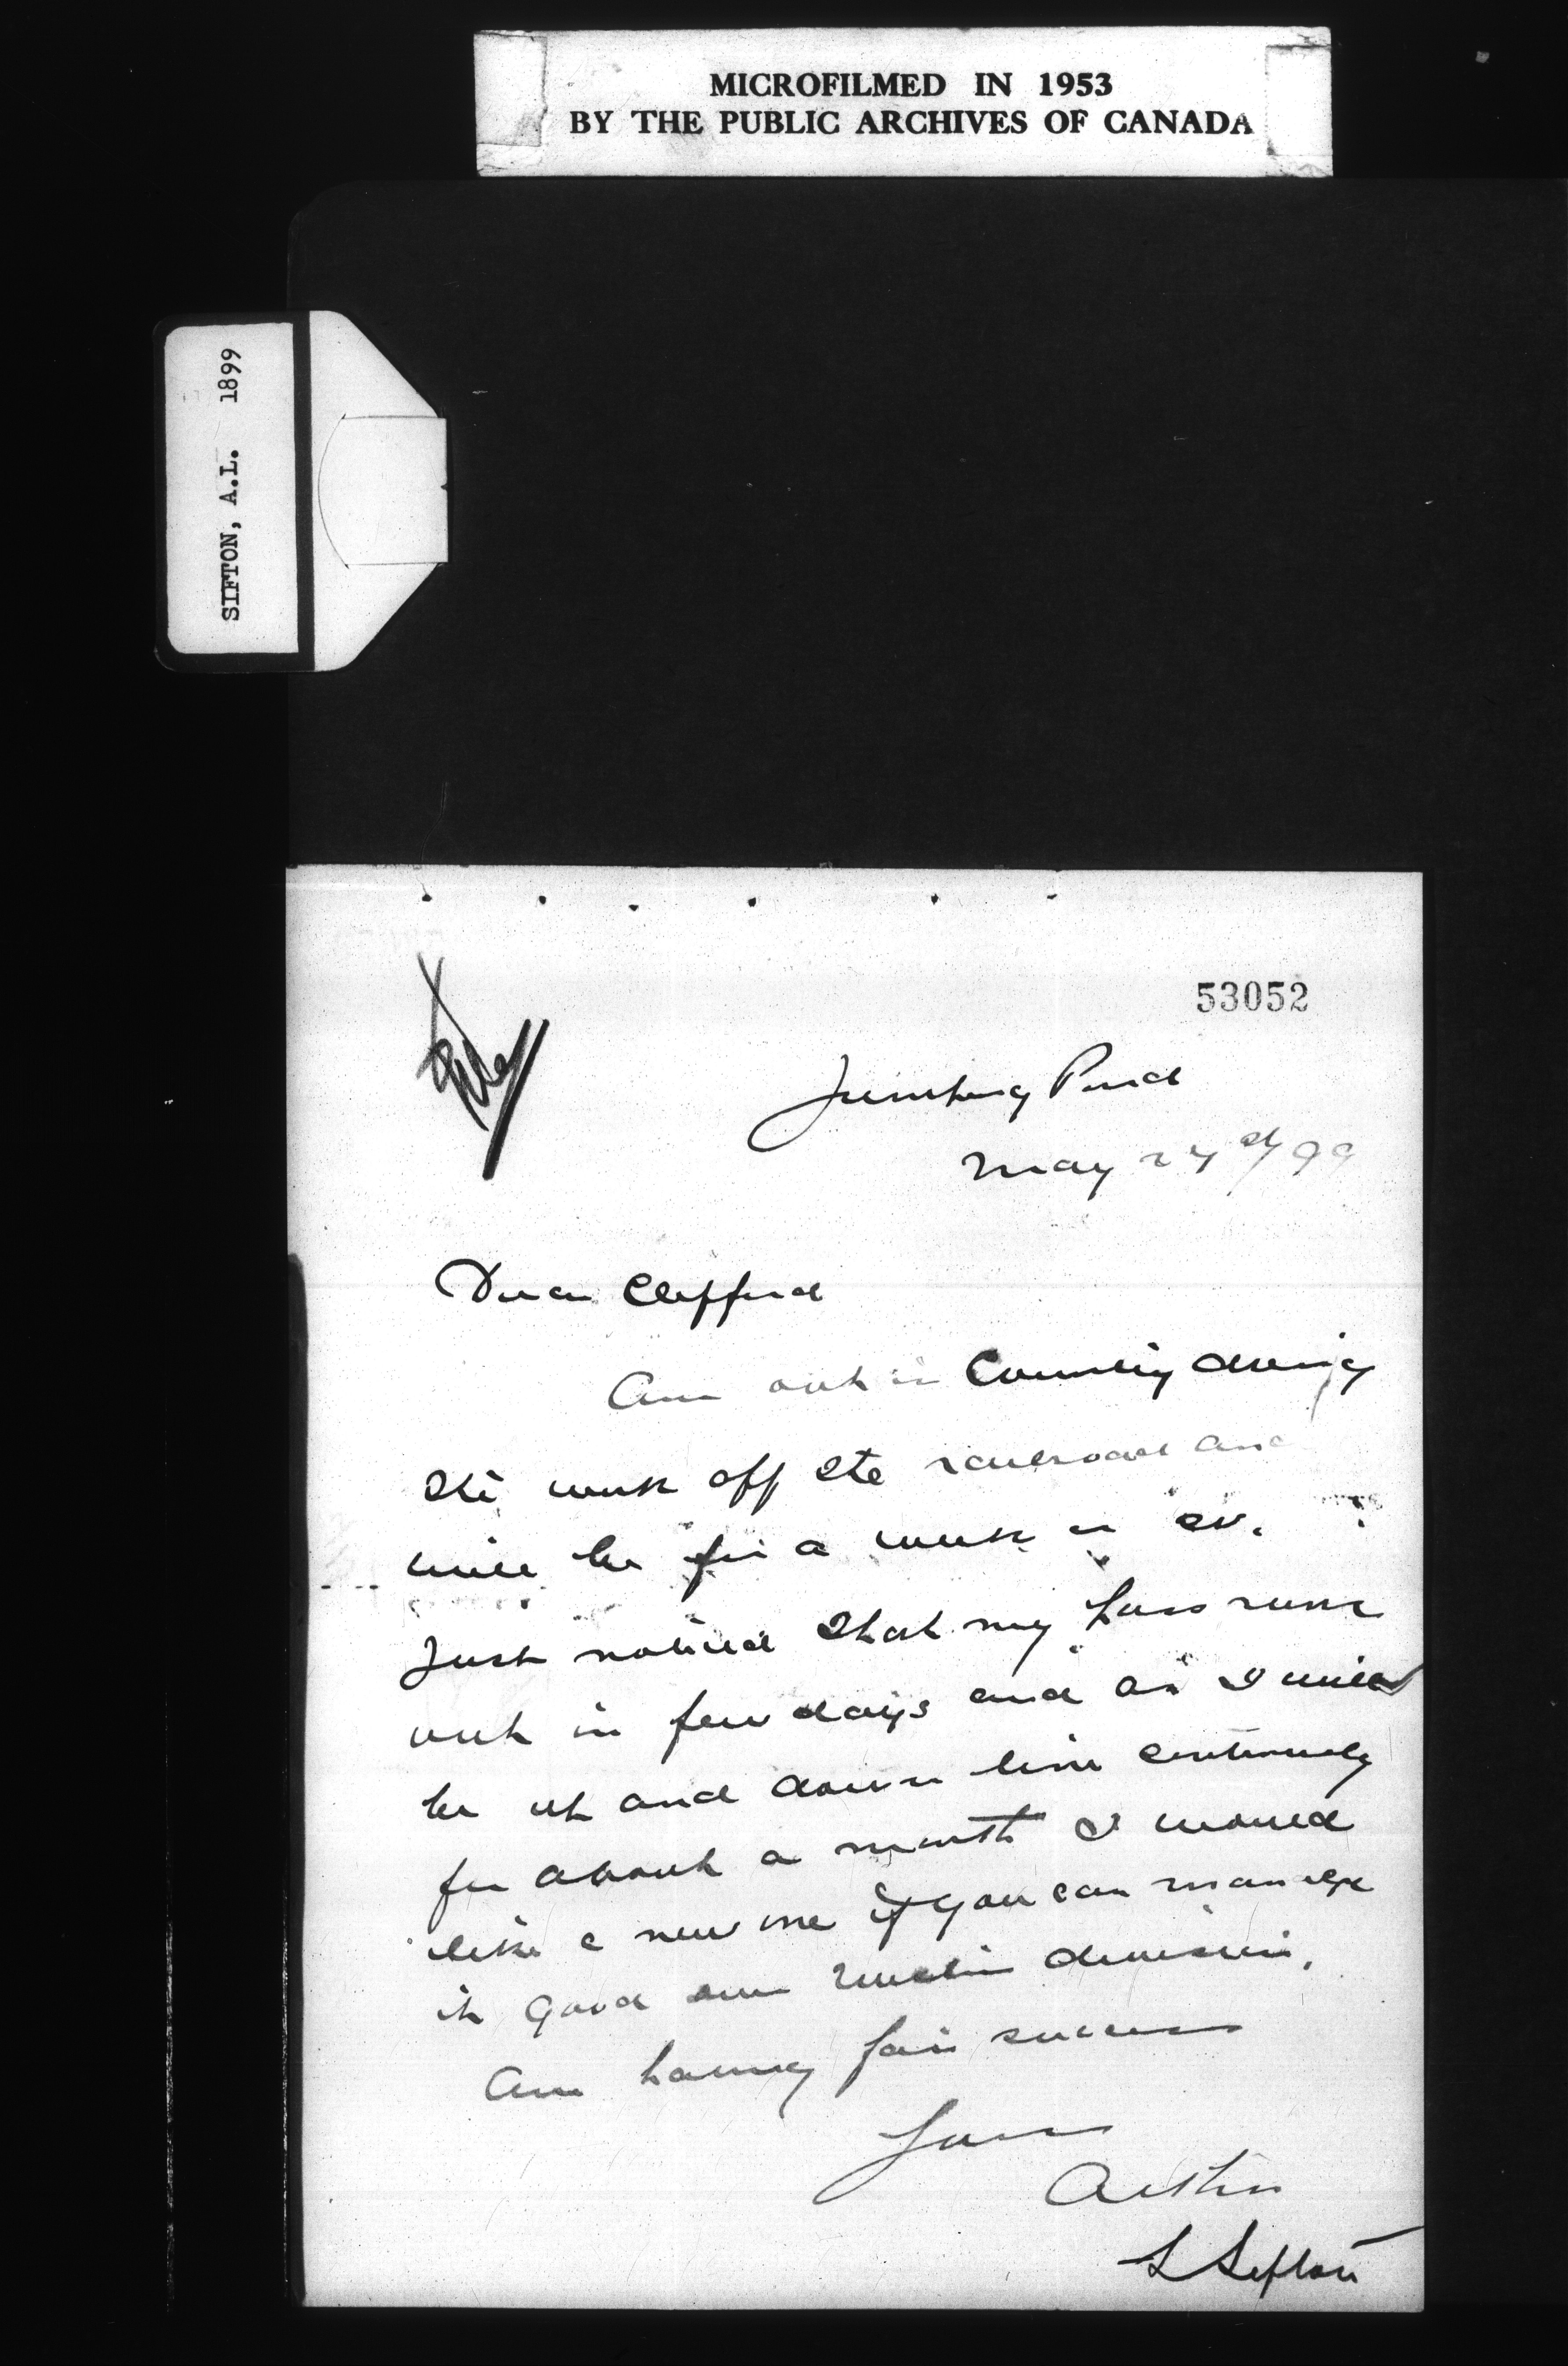 MICROFILMED IN 1953
BY THE PUBLIC ARCHIVES OF CANADA
SIFTON, A.L. 1899
53052
File
Jumping Pond
May 24th/99
Dear Clifford
Am out in Country during
the week off the railroad and
will be for a week or so.
Just noticed that my pass runs
out in few days and as I will
be up and down line continually
for about a month I would
like a new one if you can manage
it good on division.
Am having fair success
Yours
Arthur
L Sifton